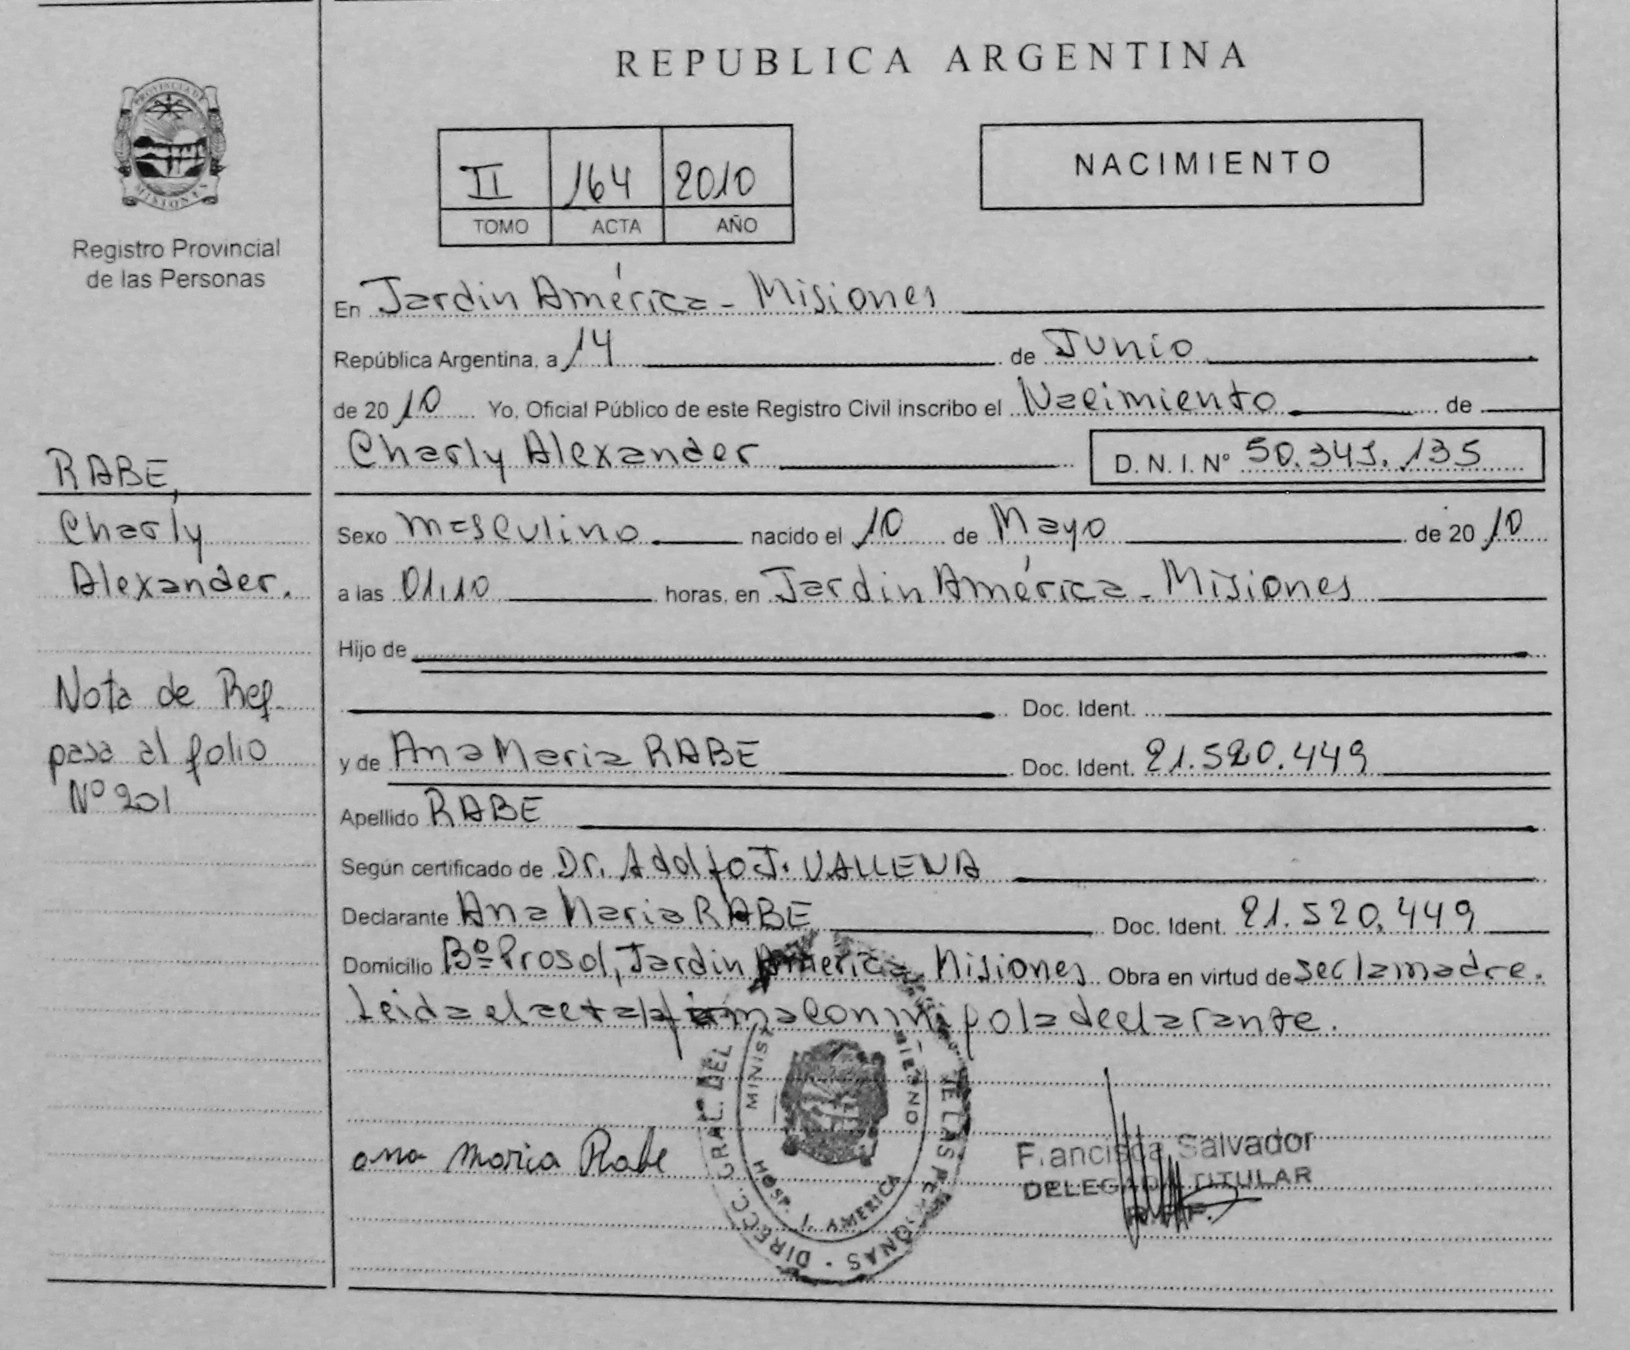 REPUBLICA ARGENTINA
PROVINCIA DE
MISIONES
Registro Provincial
de las Personas
II 164 2010
TOMO ACTA AÑO
NACIMIENTO
En Jardin América - Misiones
República Argentina, a 14 de Junio
de 2010 Yo, Oficial Público de este Registro Civil inscribo el Nacimiento de
Charly Alexander D. N. I. Nº 50.343.135
RABE,
Charly
Alexander.
Nota de Ref.
pasa al folio
Nº 201
Sexo masculino nacido el 10 de Mayo de 2010
a las 01,10 horas, en Jardin América - Misiones
Hijo de
Doc. Ident.
y de Ana Maria RABE Doc. Ident. 21.520.449
Apellido RABE
Según certificado de Dr. Adolfo J. VALLENA
Declarante Ana Maria RABE Doc. Ident. 21.520.449
Domicilio Bº Prosol, Jardin America, Misiones Obra en virtud de ser la madre.
Leida el acta la firma conmigo la declarante.
ana maria Rabe
DIRECC. GRAL. DEL DE LAS PERSONAS
HOSP. J. AMERICA
Francisca Salvador
DELEGADA TITULAR